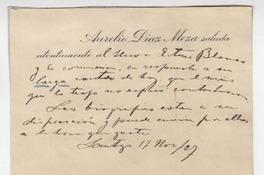 Aurelio Diaz Meza saluda
atentamente al Señor Extus Blanco
y le comunica, en respuesta a su
larga carta de hoy, que el
que la trajo no esperó contestacion.
Las biografias estan a su
disposición y puede enviar por ellas
a la hora que guste.
Santgo 17 Nov/27